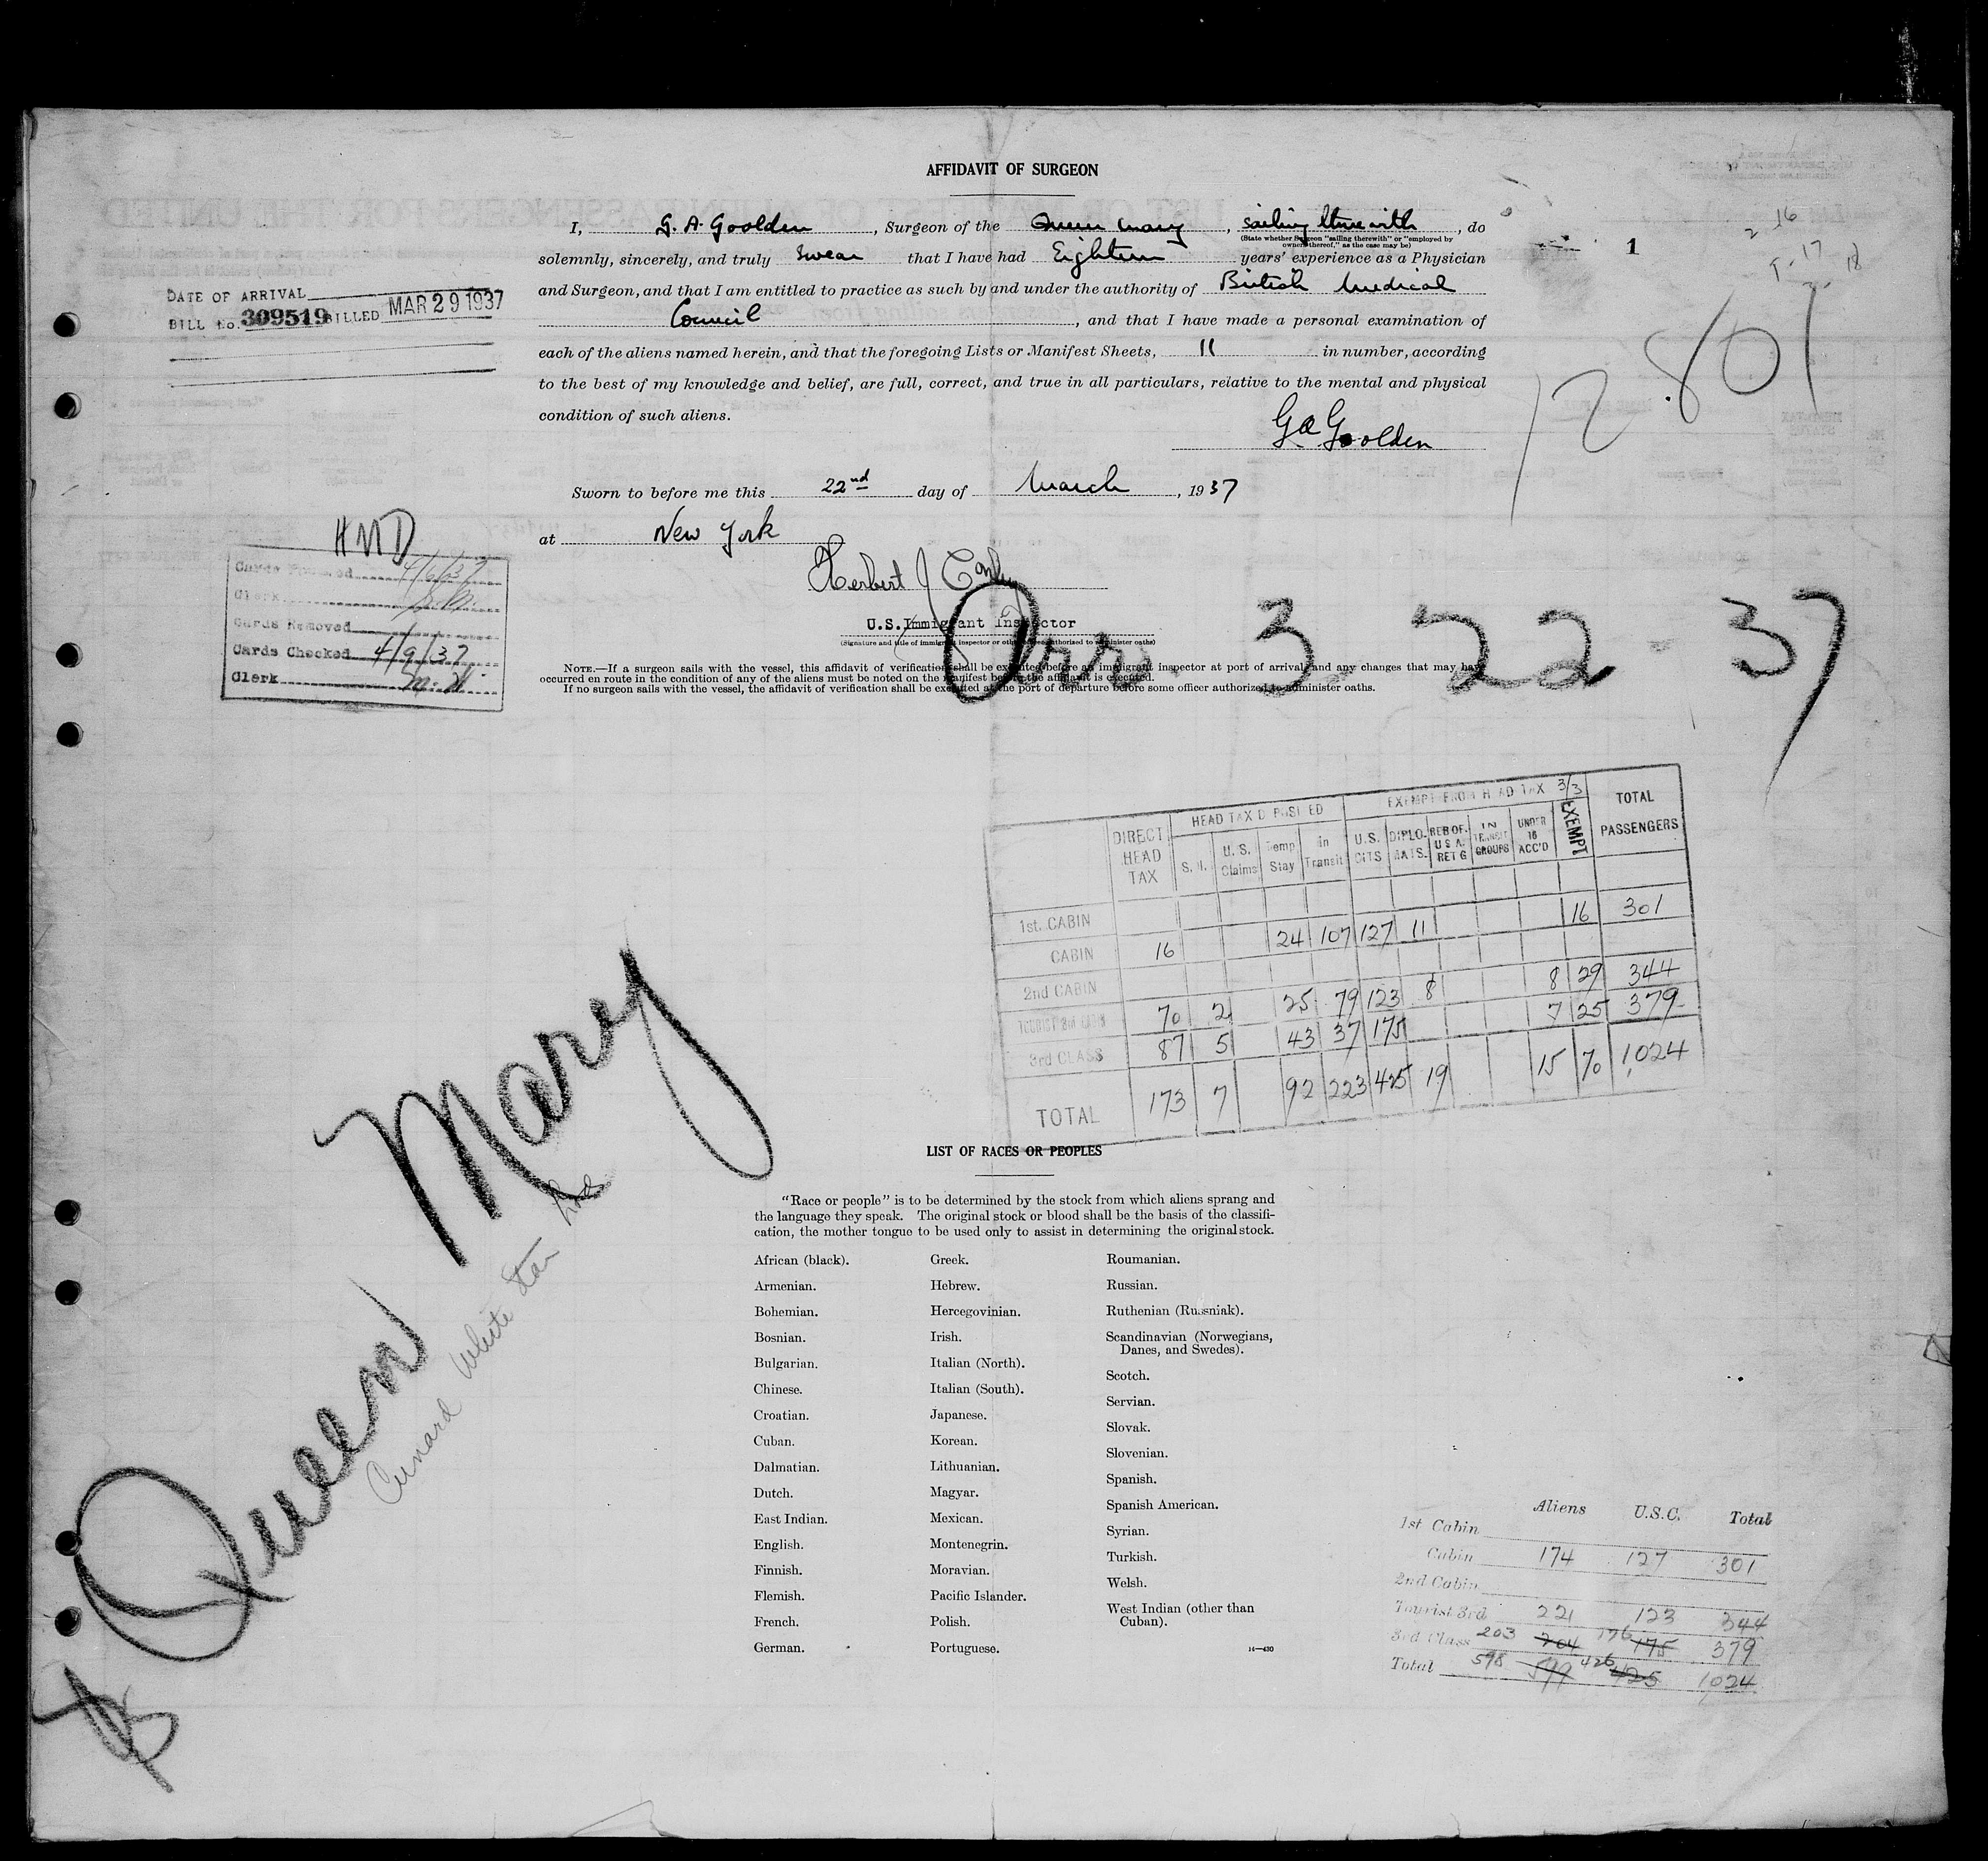 AFFIDAVIT OF SURGEON
I, G. A. Goolden, Surgeon of the Queen Mary, sailing therewith, do
(State whether Surgeon "sailing therewith" or "employed by
owners thereof," as the case may be)
solemnly, sincerely, and truly swear that I have had Eighteen years' experience as a Physician
and Surgeon, and that I am entitled to practice as such by and under the authority of British Medical
Council, and that I have made a personal examination of
each of the aliens named herein, and that the foregoing Lists or Manifest Sheets, 11 in number, according
to the best of my knowledge and belief, are full, correct, and true in all particulars, relative to the mental and physical
condition of such aliens.
G A Goolden
Sworn to before me this 22nd day of March, 1937
at New York
Herbert J
U.S. Immigrant Inspector
(Signature and title of immigrant inspector or other officer authorized to administer oaths)
NOTE.—If a surgeon sails with the vessel, this affidavit of verification shall be executed before an immigrant inspector at port of arrival, and any changes that may have
occurred en route in the condition of any of the aliens must be noted on the manifest before the affidavit is executed.
If no surgeon sails with the vessel, the affidavit of verification shall be executed at the port of departure before some officer authorized to administer oaths.
1
2 16
17
18
12801
DATE OF ARRIVAL
BILL No. 309519 BILLED MAR 29 1937
HMD
Cards 4/6/37
Clerk
Cards Removed
Cards Checked 4/9/37
Clerk
Arr. 3-22-37
DIRECT HEAD TAX
HEAD TAX DEPOSITED
EXEMPT FROM HEAD TAX
3/3
TOTAL PASSENGERS
S.I. U.S. Claims Temp Stay In Transit U.S. CITS DIPLOMATS. RES OF. U.S.A. RET'G IN TRANSIT GROUPS UNDER 16 ACC'D EXEMPT
1st. CABIN
CABIN 16 24 107 127 11 16 301
2nd CABIN
TOURIST 3rd CABIN 70 2 25 79 123 8 8 29 344
3rd CLASS 87 5 43 37 175 7 25 379
TOTAL 173 7 92 223 425 19 15 70 1,024
Queen Mary
Cunard White Star Line
LIST OF RACES OR PEOPLES
"Race or people" is to be determined by the stock from which aliens sprang and
the language they speak. The original stock or blood shall be the basis of the classifi-
cation, the mother tongue to be used only to assist in determining the original stock.
African (black).
Armenian.
Bohemian.
Bosnian.
Bulgarian.
Chinese.
Croatian.
Cuban.
Dalmatian.
Dutch.
East Indian.
English.
Finnish.
Flemish.
French.
German.
Greek.
Hebrew.
Hercegovinian.
Irish.
Italian (North).
Italian (South).
Japanese.
Korean.
Lithuanian.
Magyar.
Mexican.
Montenegrin.
Moravian.
Pacific Islander.
Polish.
Portuguese.
Roumanian.
Russian.
Ruthenian (Russniak).
Scandinavian (Norwegians,
Danes, and Swedes).
Scotch.
Servian.
Slovak.
Slovenian.
Spanish.
Spanish American.
Syrian.
Turkish.
Welsh.
West Indian (other than
Cuban).
14—430
Aliens U.S.C. Total
1st Cabin
Cabin 174 127 301
2nd Cabin
Tourist 3rd 221 123 344
3rd Class 203 204 176 175 379
Total 598 599 426 425 1024